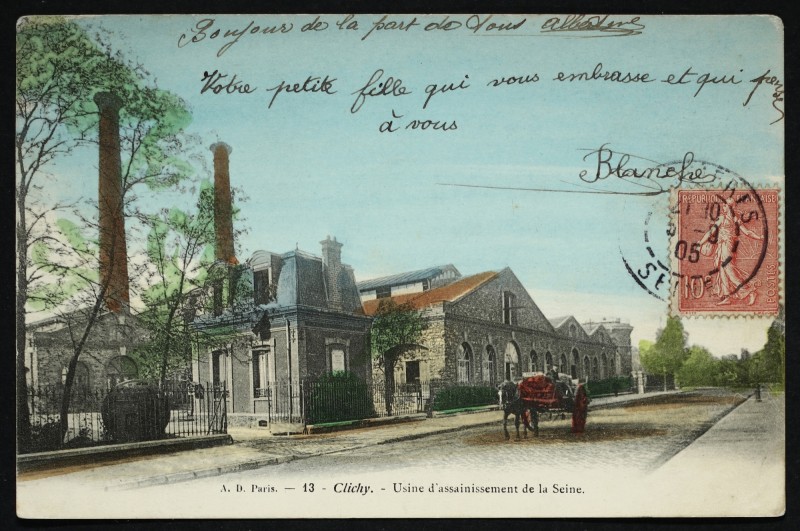 Bonjour de la part de tous
Votre petite fille qui vous embrasse et qui pense
à vous
Blanche
REPUBLIQUE FRANÇAISE
10
05
SEINE
A. D. Paris. — 13 - Clichy. - Usine d'assainissement de la Seine.